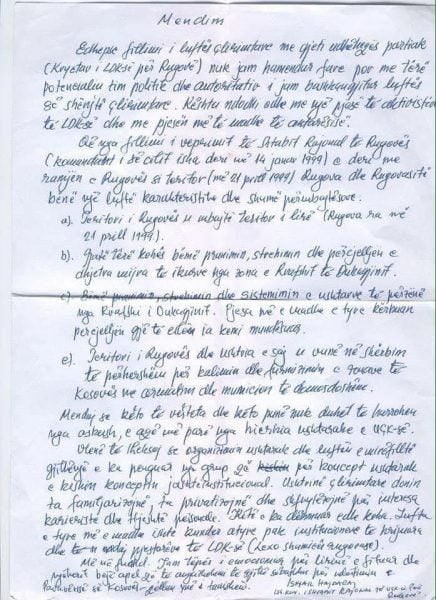 Mendim
Edhepse fillimi i luftës çlirimtare me gjeti udhëheqës partiak
(Kryetar i LDK-së për Rugovë) nuk jam hamendur fare por me tërë
potencialin tim politik dhe autoritativ i jam bashkangjitur luftës
së shenjtë çlirimtare. Kështu ndodhi edhe me një pjesë të aktivistëve
të LDK-së dhe me pjesën më të madhe të antarësisë.
Që nga fillimi i veprimit të Shtabit Rajonal të Rugovës
(komandant i së cilit isha deri më 14 janar 1999) e deri me
ranjen e Rugovës si teritor (më 21 prill 1999) Rugova dhe Rugovasitë
bënë një luftë karakteristike dhe shumë përmbajtësore.
a). Teritori i Rugovës u mbajt teritor i lirë (Rugova ra më
21 prill 1999).
b). Gjatë tërë kohës bëmë pranimin, strehimin dhe përcjelljen e
dhjetra mijra të ikurve nga zona e Rrafshit të Dukagjinit.
c). Bëmë pranimin, strehimin dhe sistemimin e ushtarve të
nga Rrafshi i Dukagjinit. Pjesa më e madhe e tyre kërkuan
përcjelljen gjë të cilën ia kemi mundësuar.
e). Teritori i Rugovës dhe ushtria e saj u vunë në shërbim
të përhershëm për kalimin dhe furnizimin e zonave të
Kosovës me armatim dhe municion të domosdoshëm.
Mendoj se këto të vërteta dhe këto punë nuk duhet të harrohen
nga askush, e aqë më parë nga hierkia ushtarake e UÇK-së.
Vlenë të theksoj se organizimin ushtarak dhe luftën e mirëfilltë
gjithnjë e ka penguar një grup që për koncept ushtarak
e kishin konceptin jashtëinstitucional. Ushtrinë çlirimtare donin
ta familjarizojnë, ta privatizojnë dhe shfrytëzojnë për interesa
karieristë dhe thjeshtë personale. Këtë e ka dëshmuar edhe koha. Lufta
e tyre më e madhe ishte kundër atyre pak institucioneve të krijuara
dhe të ndaj pjestarëve të LDK-së (Lexo shumicës rugovase).
Më në fund. Jam tepër i emocionuar për lirinë e fituar dhe
njëherit bëjë apel që të angazhohemi të gjithë sëbashku për ndërtimin e
ardhmërisë së Kosovës
Ismail Haradinaj